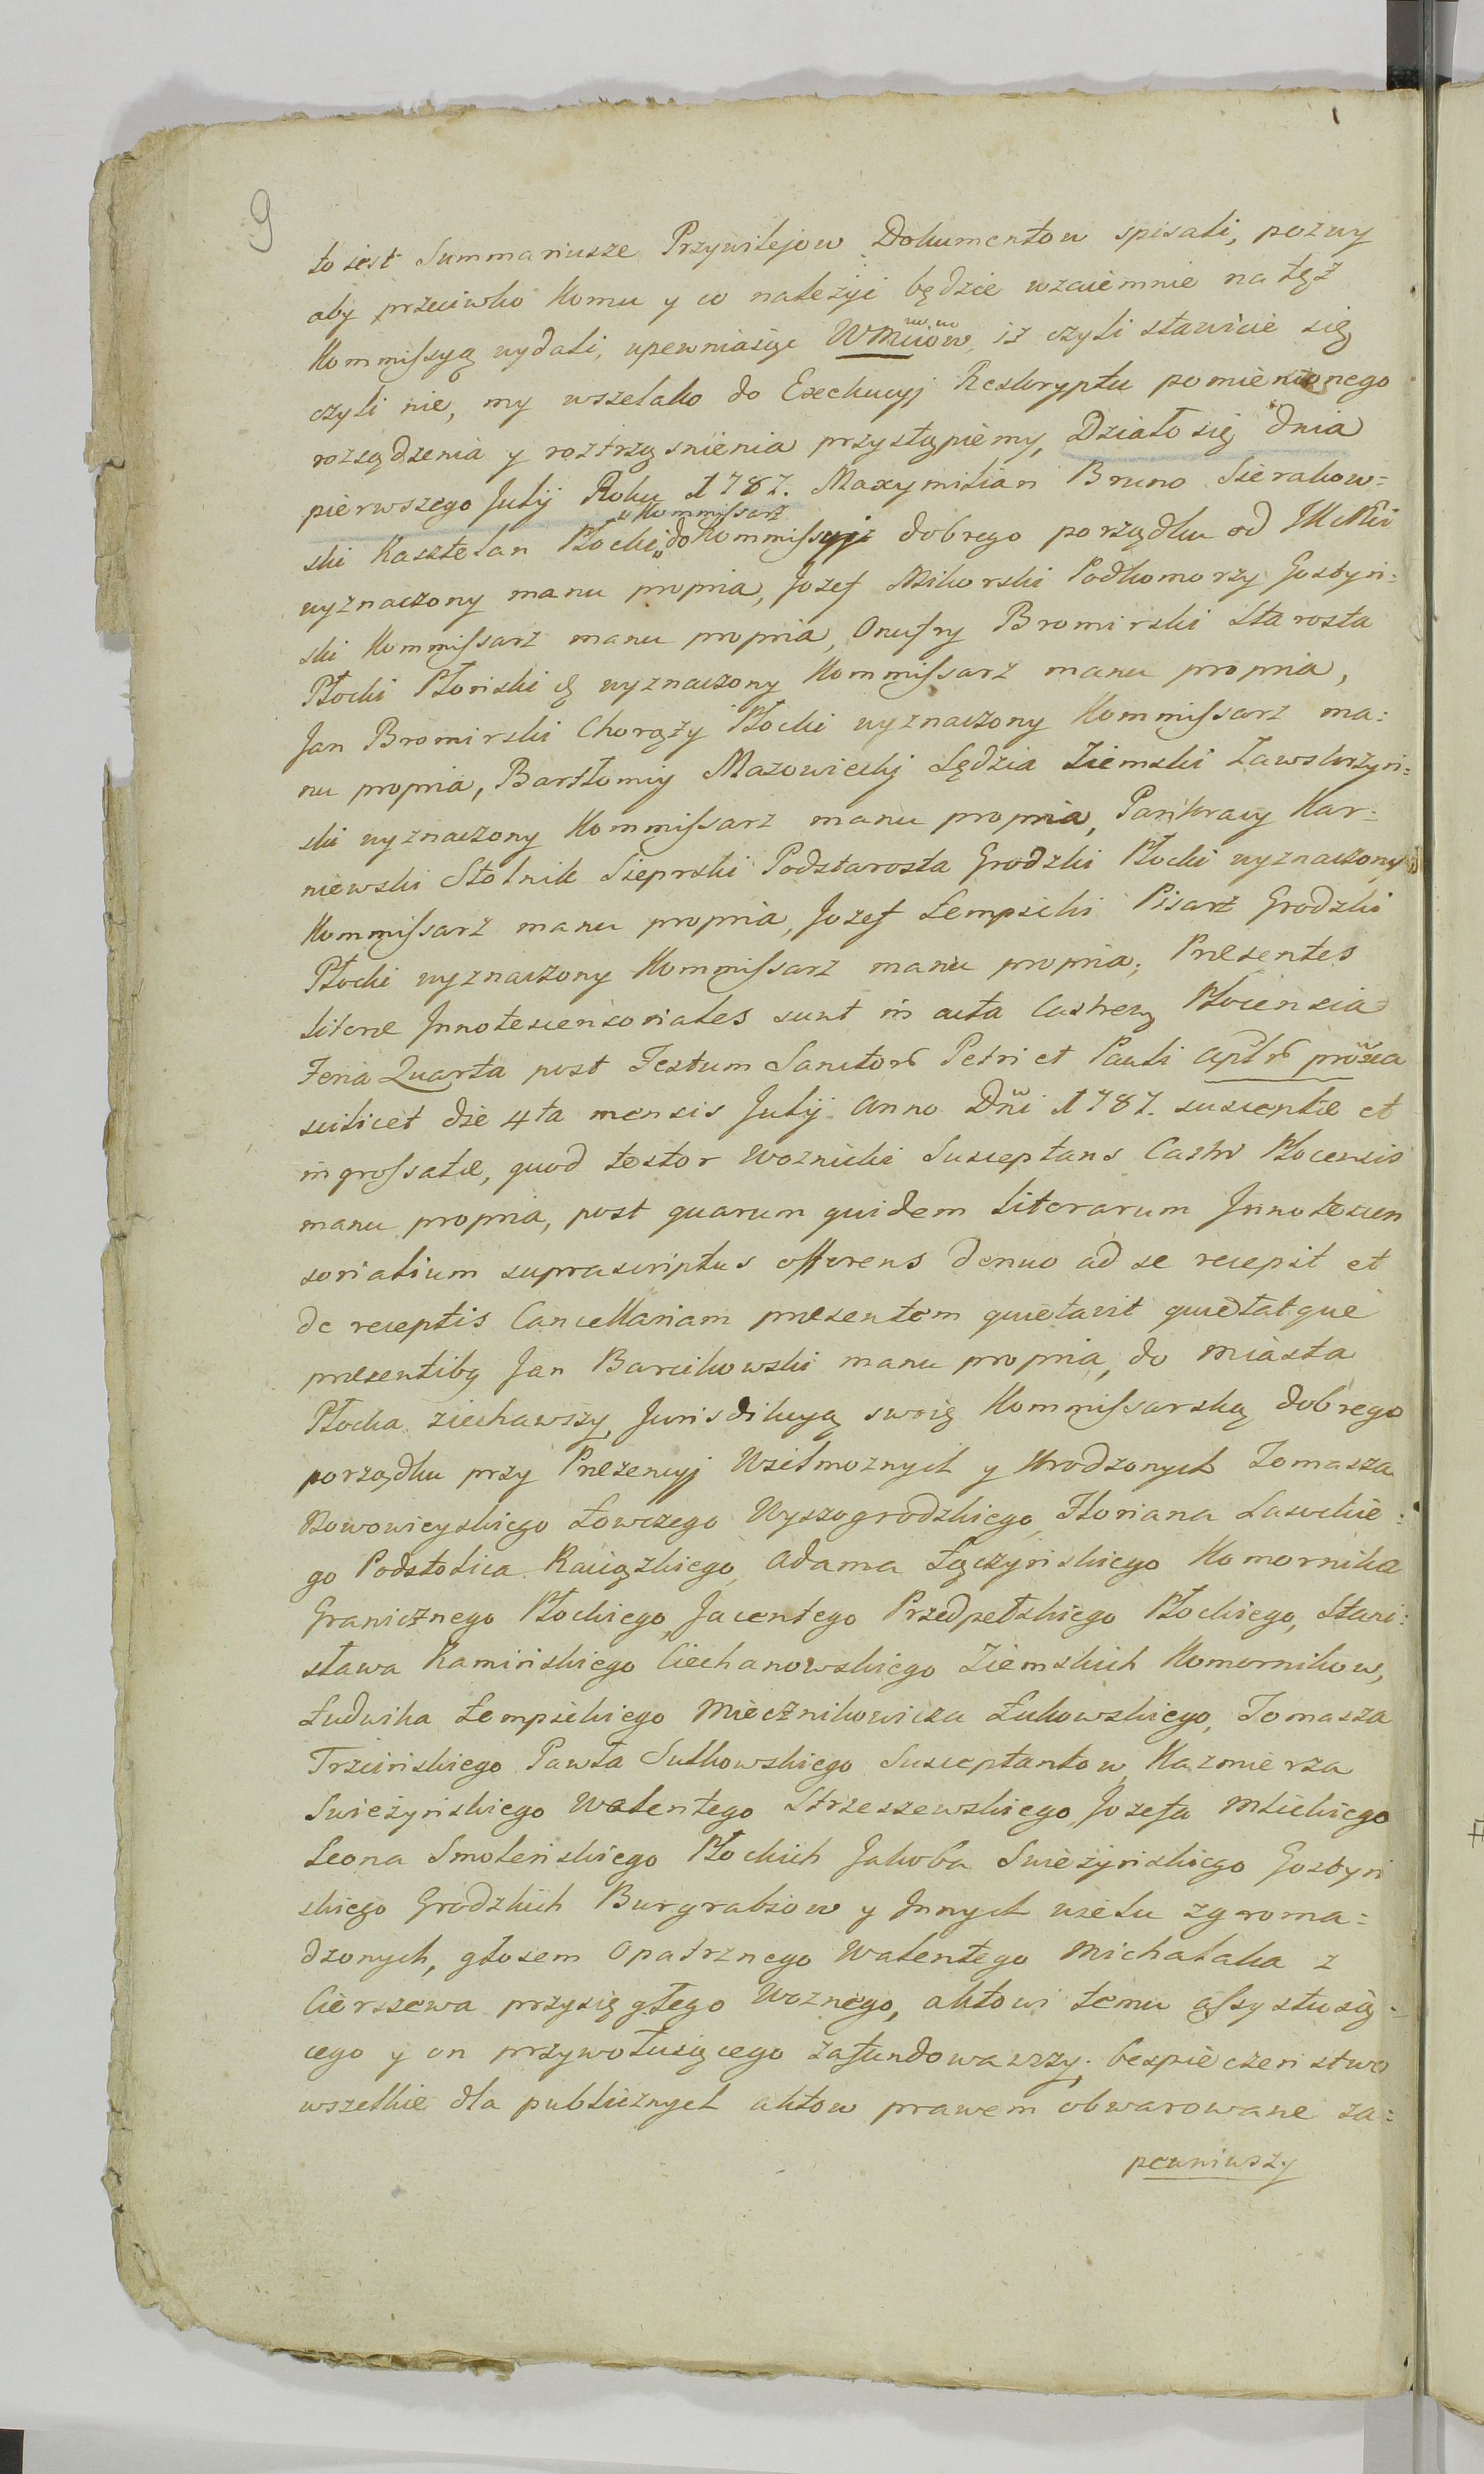 9
to iest Summariusze Przywilejow Dokumentow spisali, pozwy
aby przeciwko komu y co należyć będzie wzaiemnie na tęż
Kommissyą wydali, upewniaiąc WMciow, iż czyli stawicie się
czyli nie, my wszelako do Exekucyj Reskryptu pomienionego
rozsądzenia y roztrząsnienia przystąpiemy, Działo się dnia
pierwszego Julij Roku 1787. Maxymilian Bruno Sierakow=
Kommissarz
ski Kasztelan Płocki do Kommissyji dobrego porządku od JKMci
wyznaczony manu propria, Jozef Mikorski Podkomorzy Gostyń=
ski Kommissarz manu propria, Onufry Bromirski Starosta
Płocki Płoński wyznaczony Kommissarz manu propria,
Jan Bromirski Chorąży Płocki wyznaczony Kommissarz ma=
nu propria, Bartłomiy Mazowieckij Sędzia Ziemski Zawskrzyń=
ski wyznaczony Kommissarz manu propria, Pankracy Kar=
niewski Stolnik Sieprski Podstarosta Grodzki Płocki wyznaczony
Kommissarz manu propria, Jozef Łempicki Pisarz Grodzki
Płocki wyznaczony Kommissarz manu propria; Præsentes
literæ Innotescensoriales sunt in acta Castren Płocensia
Feria Quarta post Festum Sanctor Petri et Pauli Aptłr proxia
scilicet die 4ta mensis Julij Anno Dni 1787. susceptæ et
ingrossatæ, quod testor Woznicki Susceptans Castr Płocensis
manu propria, post quarum quidem literarum Innotescen
sorialium suprascriptus offerens denuo ad se recepit et
de receptis Cancellariam præsentem quietavit quietatque
præsentibg Jan Barcikowski manu propria, do Miasta
Płocka ziechawszy, Jurisdikcyą swoię Kommissarską dobrego
porządku przy Prezencyj Wielmożnych y Urodzonych Tomasza
Nowowieyskiego Łowczego Wyszogrodzkiego, Floriana Lasockie=
go Podstolica Raciązkiego, Adama Łączyńskiego Komornika
Granicznego Płockiego, Jacentego Przedpełskiego Płockiego, Stani=
sława Kamińskiego Ciechanowskiego Ziemskich Komornikow,
Ludwika Łempickiego Miecznikowicza Łukowskiego, Tomasza
Trzcińskiego Pawła Sutkowskiego Susceptantow, Kazmierza
Swieżyńskiego Walentego Strzeszewskiego, Jozefa Mlickiego
Leona Smoleńskiego Płockich Jakoba Swieżyńskiego Gostyń
skiego Grodzkich Burgrabiow y Innych wielu zgroma=
dzonych, głosem Opatrznego Walentego Michalaka z
Cierszewa przysięgłego Woznego, aktowi temu assystuią=
cego y on przywołuiącego zafundowawszy, bespieczeństwo
wszelkie dla publicznych aktow prawem obwarowane za=
pewniwszy